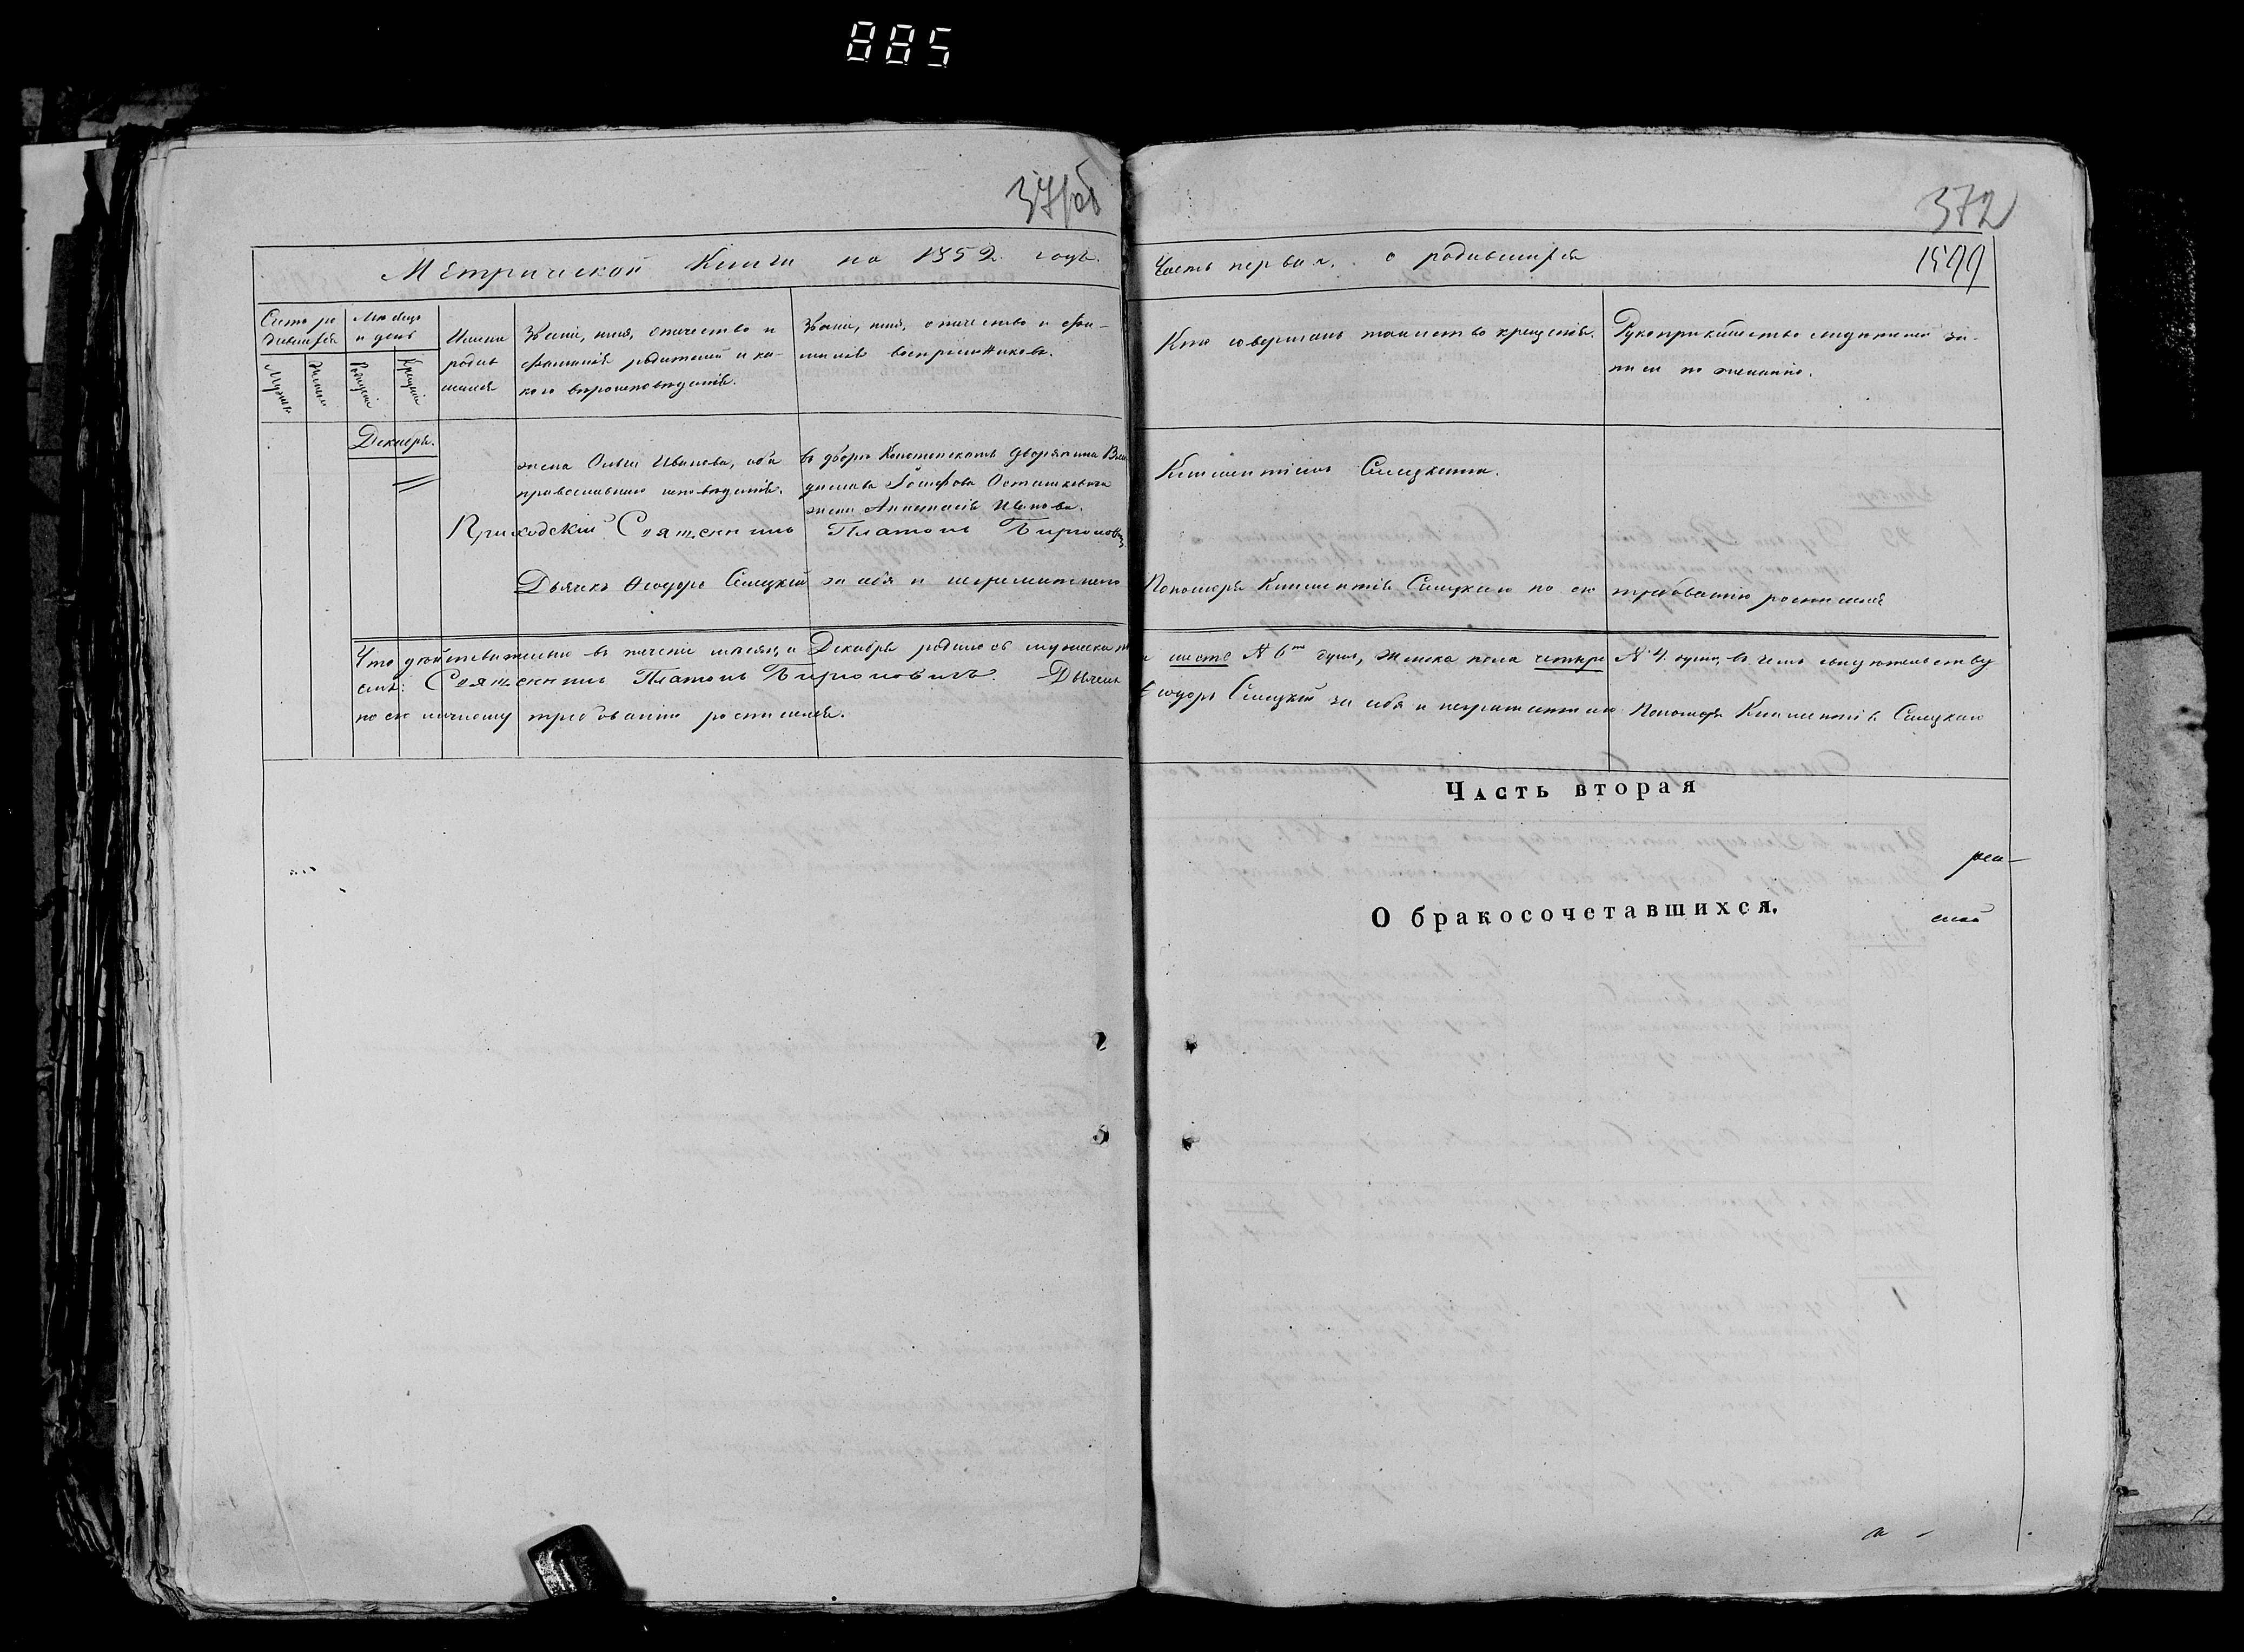 885
371об
372
Метрической Книги на 1852. годъ.
Часть первая, о родившихся
Счетъ ро
дившихся
Мужеск
Женск
Мѣсяцъ
и день
Рожденія
Крещенія
Имена
родив
шихся
Званіе, имя, отчество и
фамилія родителей и ка-
кого вѣроисповѣданія.
Званіе, имя, отчество и фа-
милія воспріемниковъ.
Кто совершалъ таинство крещенія.
Рукоприкладство свидѣтелей за-
писи по желанію.
Декабря.
жена Ольга Иванова, оба
православнаго исповѣданія.
въ дворѣ дворянина Вла
дислава Іосифова
жена Анастасія Иванова.
Климентіемъ Слицкимъ.
Приходскій Священникъ Платонъ Бирюковичъ
Дьячекъ Ѳеодоръ Слицкій за себя и неграмотнаго Пономаря Климентія Слицкаго по его требованію росписался
Что дѣйствительно въ теченіи мѣсяца Декабря родилось мужеска пола шесть № 6 душъ, женска пола четыре № 4. души, въ чемъ свидѣтельству
емъ: Священникъ Платонъ Бирюковичъ. Дьячекъ Ѳеодоръ Слицкій за себя и неграмотнаго Пономаря Климентія Слицкаго
по его личному требованію росписался.
Часть вторая
О бракосочетавшихся.